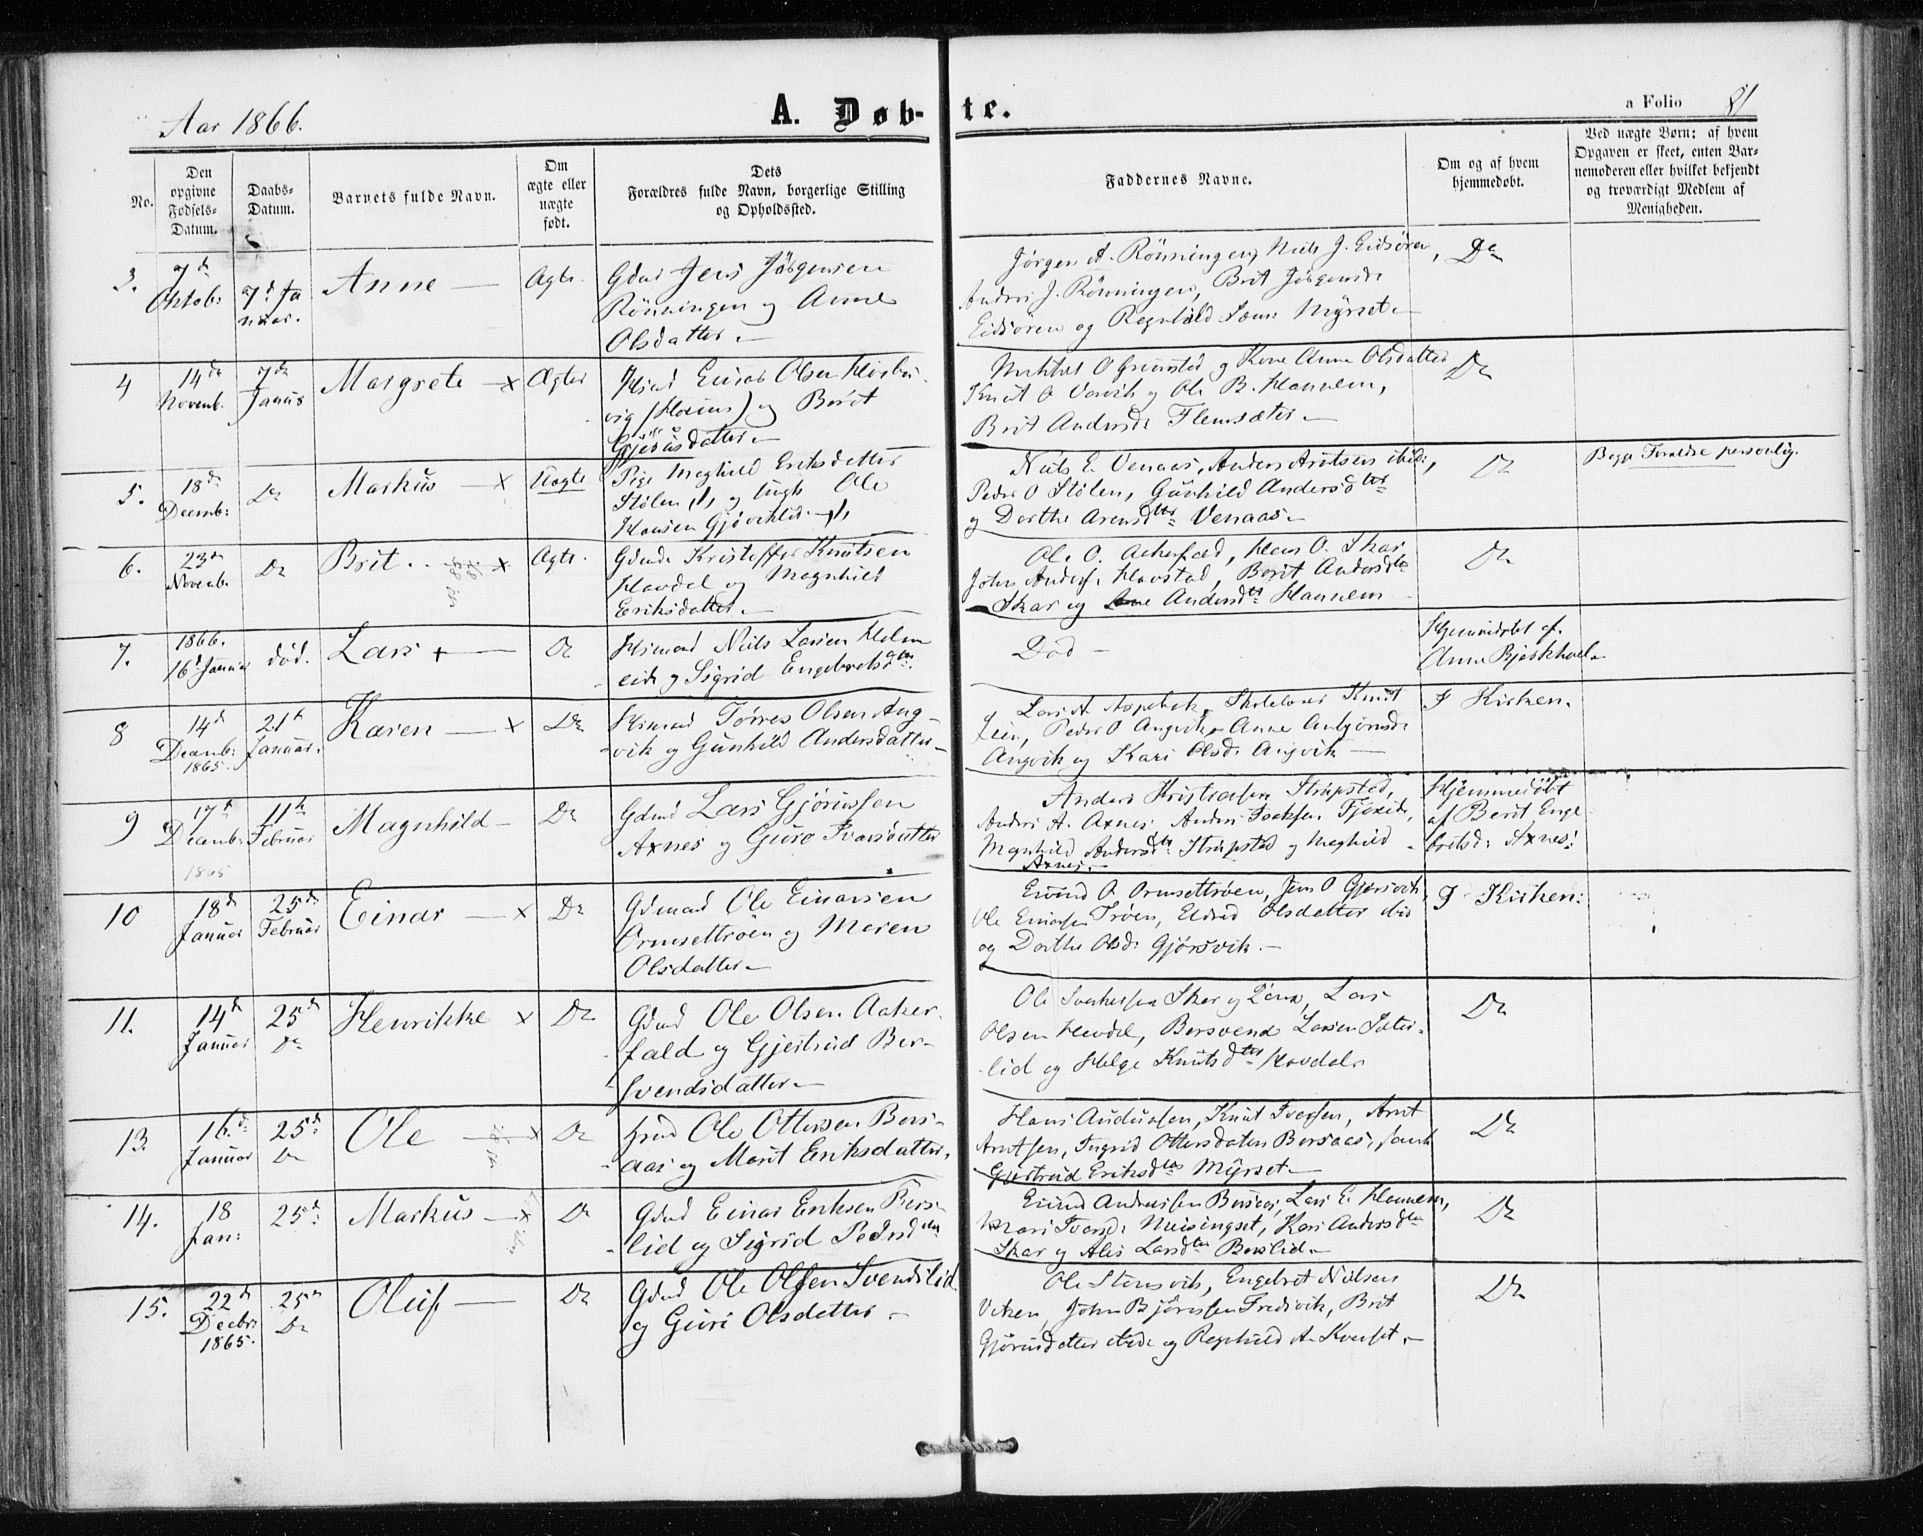 Aar 1866.
A. Døb-
te.
a Folio 81
No.
Den
opgivne
Fødsels-
Datum.
Daabs-
Datum.
Barnets fulde Navn.
Om
ægte eller
uægte
født.
Dets
Forældres fulde Navn, borgerlige Stilling
og Opholdssted.
Faddernes Navne.
Om og af hvem
hjemmedøbt.
Ved uægte Børn: af hvem
Opgaven er skeet, enten Bar-
nemoderen eller hvilket bekjendt
og troværdigt Medlem af
Menigheden.
3.
7d
Oktob:
7d Ja
nuar.
Anne
Ægte.
Gdm Jens Jörgensen
Rönningen og Anne
Olsdatter.
Jørgen A. Rönningen, Niels J. Eidsören,
Anders J. Rönningen, Brit Jörgensd:
Eidsören og Regnhild Myrset.
Do
4
14de
Novemb.
7de
Januar
Margrete x
Ægte
Einar Olsen
og Berit
O Grimstad og Kone Anne Olsdatter
Knut O og Ole B. Hannem,
Brit Andersd: Flemsæter.
Do
5.
18d
Decemb:
Do
Markus x
Uægte
Pige Magnhild Eriksdatter
Stölen og Ungk Ole
Hansen
Niels E. Venaas, Anders Arntsen ibid:,
Peder O Stölen, Gunhild Andersdter
og Dorthe Arensdter Venaas.
Do
Begge Forældre personlig.
6.
23de
Novemb.
Do
Brit x
Ægte.
Gdmd: Kristoffer Knutsen
Havdal og Magnhild
Eriksdatter.
Ole O. Akerfald, Hans O. Skar
John Anders: Havstad, Berit Andersdtr
Skar og Andersdtr Hannem
Do
7.
1866.
16d Januar
död.
Lars +
Do
Niels Larsen Holm
eide og Sigrid Engebretsdter.
Död
Hjemmedøbt af
Anne
8
14d
Decemb:
1865.
21d
Januar.
Karen x
Do
Törres Olsen Ang-
vik og Gunhild Andersdatter
Lars A Aspehol, Skolelærer Knut
Leen, Peder O Angvik, Anne
Angvik og Kari Olsd: Angvik
I Kirken.
9
17d
Decemb:
1865
11te
Februar
Magnhild
Do
Gdmd Lars Gjörussen
Axnes og Guro Ivarsdatter
Anders Kristiansen Strupstad,
Anders A. Axnes, Anders Fjøseid,
Magnhild Andersdtr Strupstad og Maghild
Axnes.
Hjemmedöbt
af Berit Enge
bretsd: Axnes:
10
18d
Januar
25d
Februar
Einar x
Do
Gdmand Ole Einarsen
Ormsettröen og Maren
Olsdatter.
Eivind O Ormsettröen, Jens O Gjörsvik,
Ole Einarsen Tröen, Eldrid Olsdatter ibid
og Dorthe Olsd: Gjörsvik.
I Kirken:
11.
14d
Januar
25d
Do
Henrikke x
Do
Gdmd Ole Olsen Aaker-
fald og Gjertrud Ber-
svendsdatter.
Ole Sverkersen Skar og Kone, Lars
Olsen Havdal, Bersvend Larsen Sæter-
lid og Helge Knutsdter Havdal.
Do
13.
16.d
Januar
25d
Do
Ole x
Do
Ole Ottersen Bers-
aas og Marit Eriksdatter.
Hans Andersen, Knut Iversen, Arnt
Arntsen, Ingrid Ottersdatter Bersaas, samt
Gjertrud Eriksdtr Myrset.
Do
14.
18
Jan:
25d:
Markus x
Do
Gdmd Einar Eriksen Bers-
lid og Sigrid Pedersdter
Eivind Andersen Bersaas, Lars E. Hannem,
Mari Ivarsd: Meisingset, Kari Andersdtr
Skar og Alis Larsdtr Berslid.
Do
15.
22d
Decbr:
1865.
25d
Do
Oluf
Do
Gdmd Ole Olsen Svendslid
og Guri Olsdatter.
Ole Stensvik, Engebret Nilsen
Viken, John Fredsvik, Brit
ibid: og Regnhild A. Kvesset.
Do